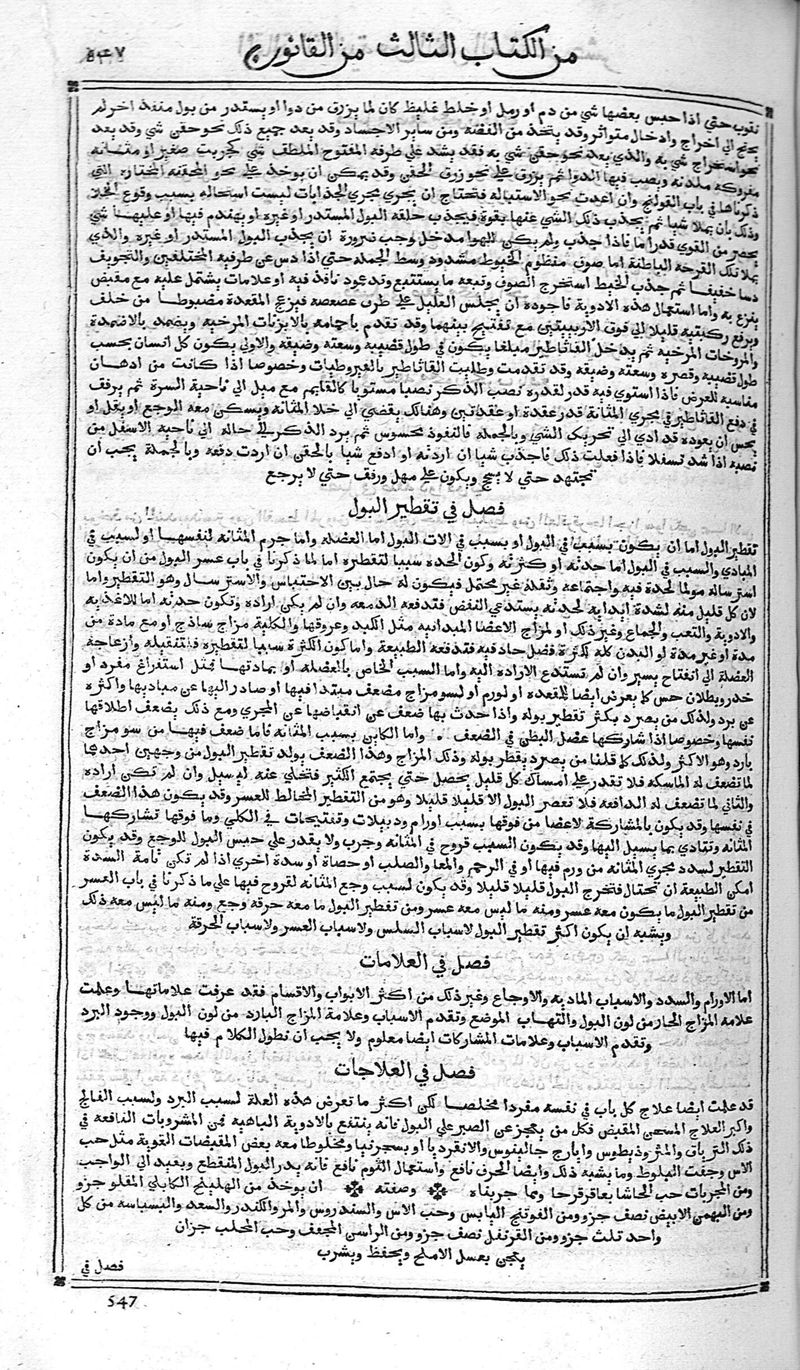 من الكتاب الثالث من القانون ٥٤٧
ثقوب حتي اذا حبس بعضها شي من دم او رمل او خلط غليظ كان لما يزرق من دوا او يستقدر من بول منفذ اخر لم
يحتج الي اخراج وادخال متواتر وقد يتخذ من الفضه ومن ساير الاجساد وقد يعد جميع ذلك نحو حقن شي وقد يعد
نحو استخراج شي به والذي يعد نحو حقن شي به فقد يشد علي طرفه المفتوح الملطف شي كجريت صغير او مثانه
مفروكه ملدنه ويصب فيها الدوا ثم يزرق علي نحو زرق الحقن وقد يمكن ان يوخذ علي نحو المحقنه المختاره التي
ذكرناها في باب القولنج وان اعدت نحو الاستباله فتحتاج ان يجري مجري الجذابات ليست استحاله بسبب وقوع الخلا
وذلك بان يملا شيا ثم يجذب ذلك الشي عنها بقوة فيجذب خلفه البول المستدر او غيره او يهندم فيها او عليها شي
يحصر من القوي قدرا ما فاذا جذب ولم يكن للهوا مدخل وجب ضرورة ان يجذب البول المستدر او غيره والذي
يملا تلك الفرجه الباطنة اما صوف منظوم الخيوط مشدود وسط الجمله حتي اذا دس عن طرفيه المختلفين والتجويف
دسا خفيفا ثم جذب الخيط استخرج الصوف وتبعه ما يستتبع وعمود نافذ فيه او علامات يشتمل عليه مع مقبض
ينزع به واما استعمال هذه الادوية فاجوده ان يجلس العليل علي طرف عصعصه فيزعج المقعدة مضبوطا من خلف
ويرفع ركبتيه قليلا الي فوق الاربيتين مع تفتيح بينهما وقد تقدم باحمامه بالابزنات المرخيه ويضمد بالاضمدة
والمروخات المرخيه ثم يدخل القاثاطير مبلغا يكون في طول قضيبه وسعته وضيقه والاولي يكون كل انسان بحسب
طول قضيبه وقصره وسعته وضيقه وقد تقدمت وطليت القاثاطير بالقيروطيات وخصوصا اذا كانت من ادهان
مناسبه للعرض فاذا استوي فيه قدر لقدره نصب الذكر نصبا مستويا كالقايم مع ميل الي ناحية السرة ثم يرفق
في دفع القاثاطير في مجري المثانة قدر عقدة او عقدتين وهنالك يفضي الي خلا المثانه ويسكن معه الوجع او يقل او
يحس ان بعوده قد ادي الي تحريك الشي وبالجمله فالنفوذ محسوس ثم يرد الذكر علي حاله الي ناحيه الاسفل من
نصبه اذا شد تسفلا فاذا فعلت ذلك فاجذب شيا ان اردته او ادفع شيا بالحقن ان اردت دفعه وبالجملة يجب ان
تجتهد حتي لا يسحج ويكون علي مهل ورفق حتي لا يرجع
فصل في تقطير البول
تقطير البول اما ان يكون بسبب في البول او بسبب في الات البول اما العضله واما جرم المثانه لنفسها او لسبب في
المبادي والسبب في البول اما حدته او كثرته وكون الحده سببا لتقطيره اما لما ذكرنا في باب عسر البول من ان يكون
استرساله مولما لحدة فيه واجتماعه وثقله غير محتمل فيكون له حال بين الاحتباس والاسترسال وهو التقطير واما
لان كل قليل منه لشدة ايذايه لحدته يستدعي النفض فتدفعه الدمعه وان لم يكن اراده وتكون حدته اما للاغذيه
والادوية والتعب والجماع وغير ذلك او لمزاج الاعضا المبدانيه مثل الكبد وعروقها والكلية مزاج ساذج او مع مادة من
مدة او غير مدة او البدن كله لكثرة فضل حاد فيه فتدفعه الطبيعة واما كون الكثرة سببا لتقطيره فلتثقيله وازعاجه
العضلة الي انفتاح يسير وان لم تستدع الاراده اليه واما السبب الخاص بالعضله او بمادتها فمثل استفراغ مفرد او
خدر وبطلان حس كما يعرض ايضا للمقعده او لورم او لسو مزاج مضعف مبتدا فيها او صادر اليها عن مباديها واكثره
عن برد ولذلك من يصرد يكثر تقطير بوله واذا حدث بها ضعف عن انقباضها عن المجري ومع ذلك يضعف اطلاقها
نفسها وخصوصا اذا شاركها عضل البطن في الضعف . واما الكاين بسبب المثانه فاما ضعف فيها من سو مزاج
بارد وهو الاكثر ولذلك كما قلنا من يصرد يقطر بوله وذلك المزاج وهذا الضعف يولد تقطير البول من وجهين احدهما
لما تضعف له الماسكه فلا تقدر علي امساك كل قليل يحصل حتي يجتمع الكثير فتخلي عنه ليسيل وان لم تكن اراده
والثاني لما تضعف له الدافعه فلا تعصر البول الا قليلا قليلا وهو من التقطير المخالط للعسر وقد يكون هذا الضعف
في نفسها وقد يكون بالمشاركة لاعضا من فوقها بسبب اورام ودبيلات وتفتيحات في الكلي وما فوقها تشاركها
المثانه وتتادي بما يسيل اليها وقد يكون السبب قروح في المثانه وجرب ولا يقدر علي حبس البول للوجع وقد يكون
التقطير لسدد مجري المثانه من ورم فيها او في الرحم والمعا والصلب او حصاة او سدة اخري اذا لم تكن تامة السدة
امكن الطبيعة ان تحتال فتخرج البول قليلا قليلا وقد يكون لسبب وجع المثانه لقروح فيها علي ما ذكرنا في باب العسر
من تقطير البول ما يكون معه عسر ومنه ما ليس معه عسر ومن تقطير البول ما معه حرقه وجع ومنه ما ليس معه ذلك
ويشبه ان يكون اكثر تقطير البول لاسباب السلس ولاسباب العسر ولاسباب الحرقة
فصل في العلامات
اما الاورام والسدد والاسباب الماديه والاوجاع وغير ذلك من اكثر الابواب والاقسام فقد عرفت علاماتها وعلمت
علامه المزاج الحار من لون البول والتهاب الموضع وتقدم الاسباب وعلامة المزاج البارد من لون البول ووجود البرد
وتقدم الاسباب وعلامات المشاركات ايضا معلوم ولا يجب ان نطول الكلام فيها
فصل في العلاجات
قد علمت ايضا علاج كل باب في نفسه مفردا مخلصا لكن اكثر ما تعرض هذه العلة لسبب البرد ولسبب الفالج
واكبر العلاج المسخن المقبض فكل من يعجز عن الصبر علي البول فانه ينتفع بالادوية الباهيه فمن المشروبات النافعه في
ذلك الترياق والمثروذيطوس وايارج جالينوس والانقرديا او بسجرنيا ومخلوطا معه بعض المقبضات القوية مثل حب
الاس وجفت البلوط وما يشبه ذلك وايضا الحرف نافع واستعمال الثوم نافع فانه يدر البول المنقطع ويعيد الي الواجب
ومن المجربات حب الحاشا بعاقرقرحا ومما جربناه ✤ وصفته ✤ ان يوخذ من الهليلج الكابلي المقلو جزو
ومن البهمن الابيض نصف جزو ومن الفوتنج اليابس وحب الاس والسندروس والمر والكندر والسعد والبسباسه من كل
واحد ثلث جزو ومن القرنفل نصف جزو ومن الراسن المجفف وحب المحلب جزان
يعجن بعسل الاملج ويحفظ ويشرب
فصل في
547